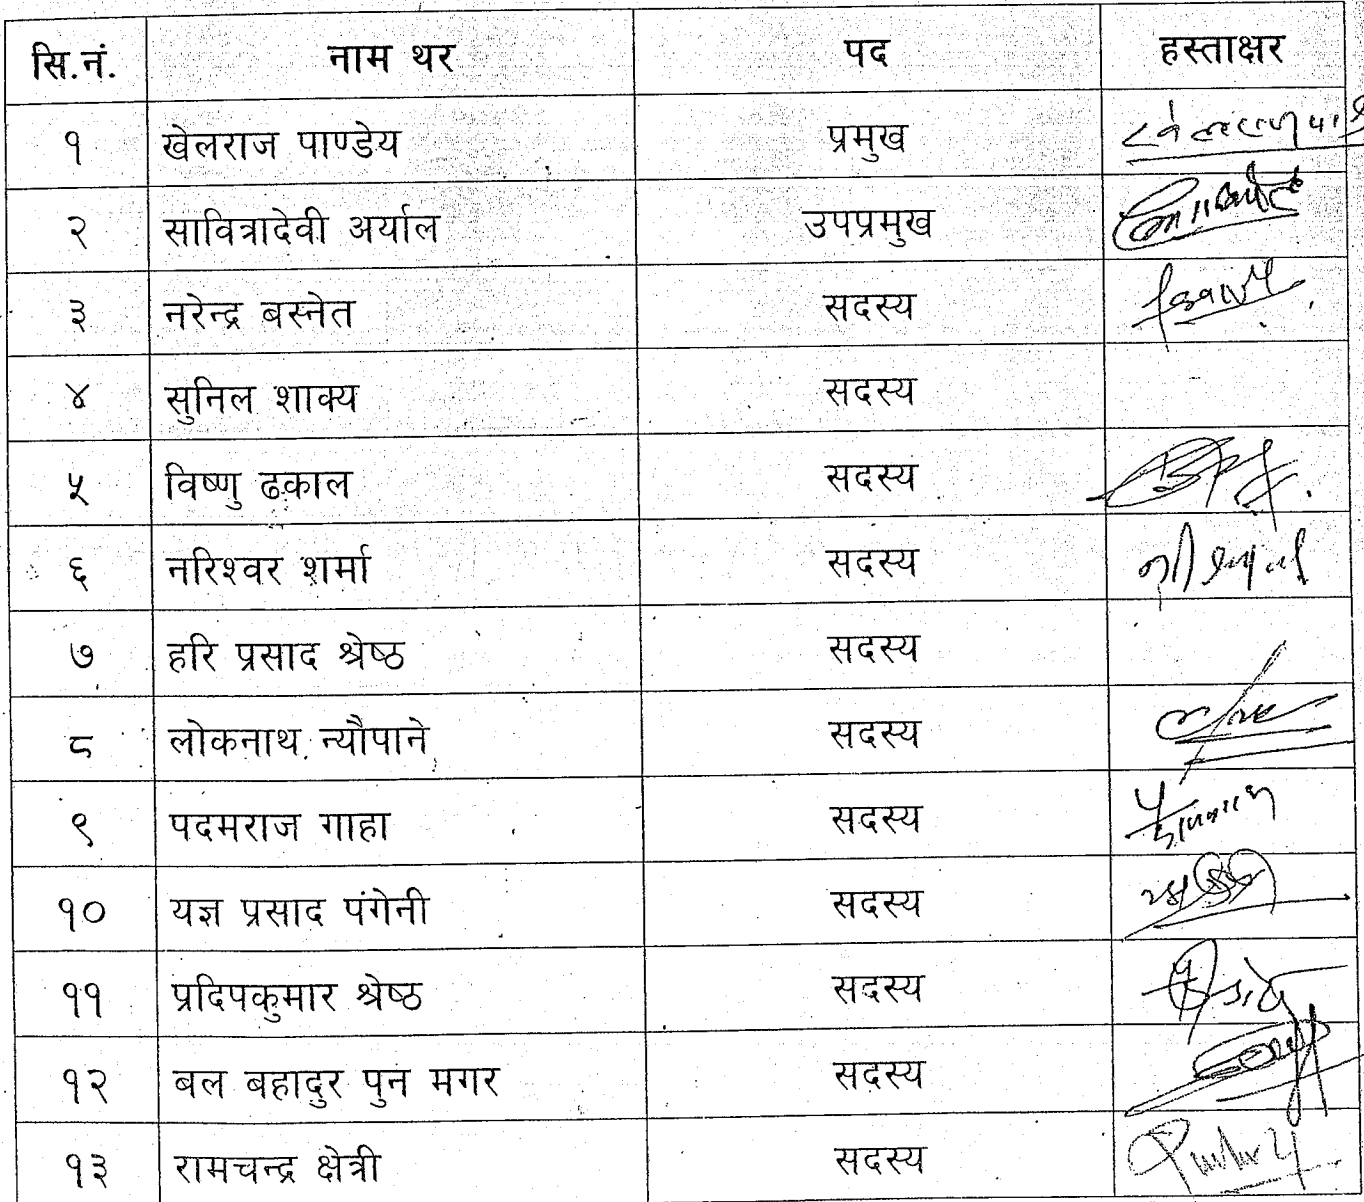 सि.नं. नाम थर पद हस्ताक्षर
१ खेलराज पाण्डेय प्रमुख
२ सावित्रादेवी अर्याल उपप्रमुख
३ नरेन्द्र बस्नेत सदस्य
४ सुनिल शाक्य सदस्य
५ विष्णु ढकाल सदस्य
६ नरिश्वर शर्मा सदस्य
७ हरि प्रसाद श्रेष्ठ सदस्य
८ लोकनाथ न्यौपाने सदस्य
९ पदमराज गाहा सदस्य
१० यज्ञ प्रसाद पंगेनी सदस्य
११ प्रदिपकुमार श्रेष्ठ सदस्य
१२ बल बहादुर पुन मगर सदस्य
१३ रामचन्द्र क्षेत्री सदस्य